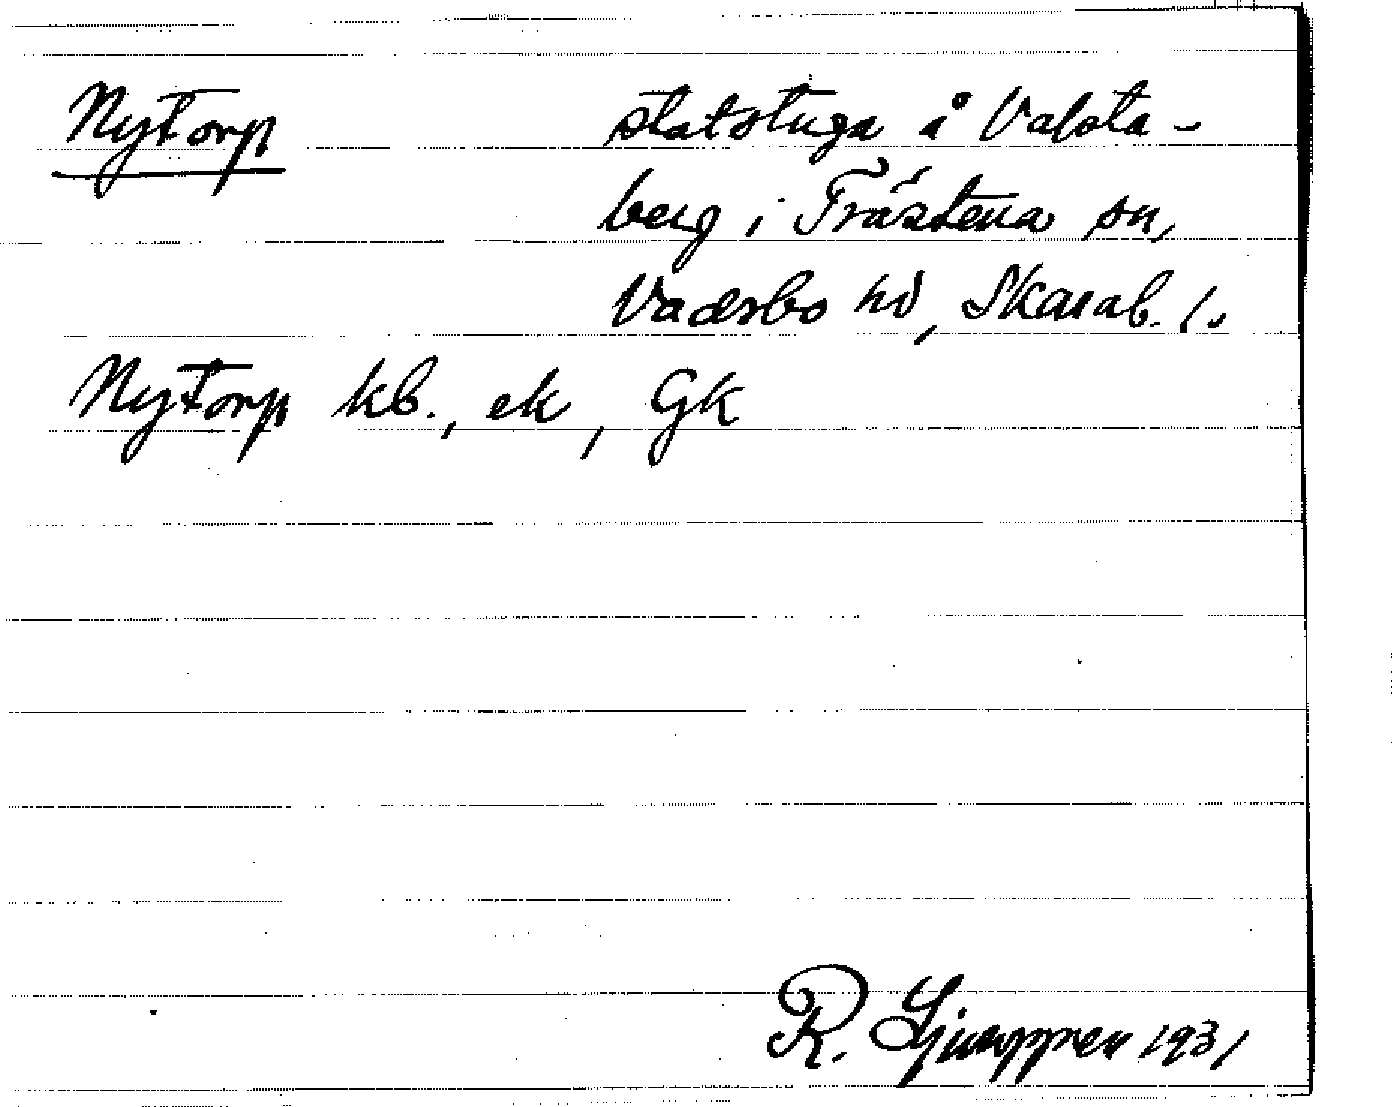 Nytorp statstuga å Valsta-
berg i Trästena sn,
Vadsbo hd, Skarab. l.
Nytorp kb., ek, Gk
R. Ljunggren 1931